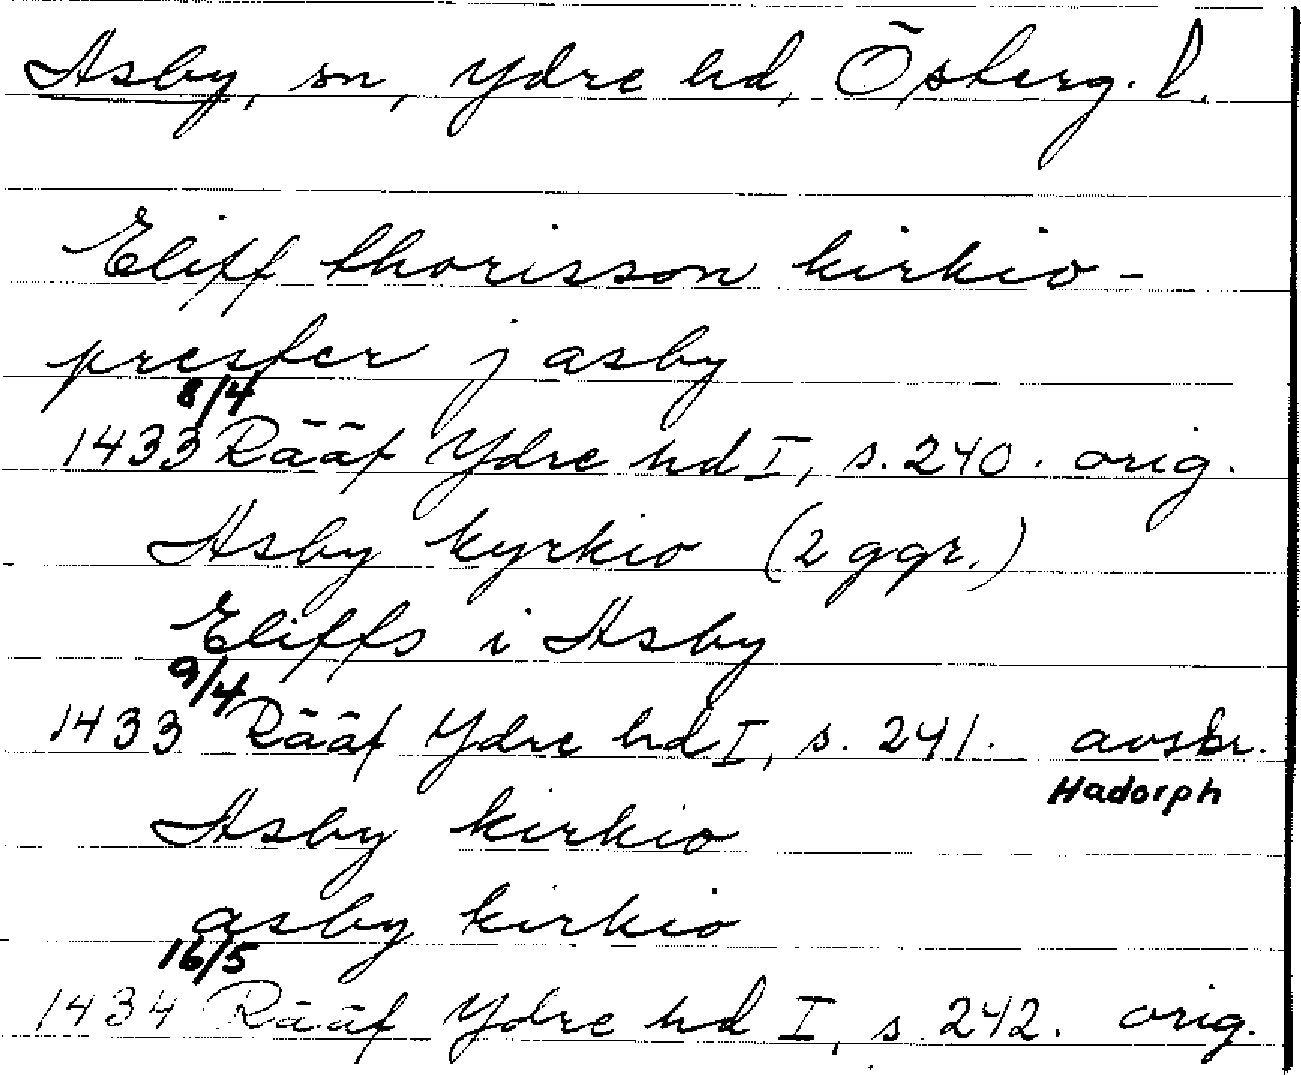 Asby, sn, Ydre hd, Österg. l.
Eliff thorisson kirkio-
prester j asby
8/4
1433 Rääf Ydre hd I, s. 240. orig.
Asby kyrkio (2 ggr.)
Eliffs i Asby
9/4
1433 Rääf Ydre hd I, s. 241. avskr.
Hadorph
Asby kirkio
asby kirkio
16/5
1434 Rääf Ydre hd I, s. 242. orig.